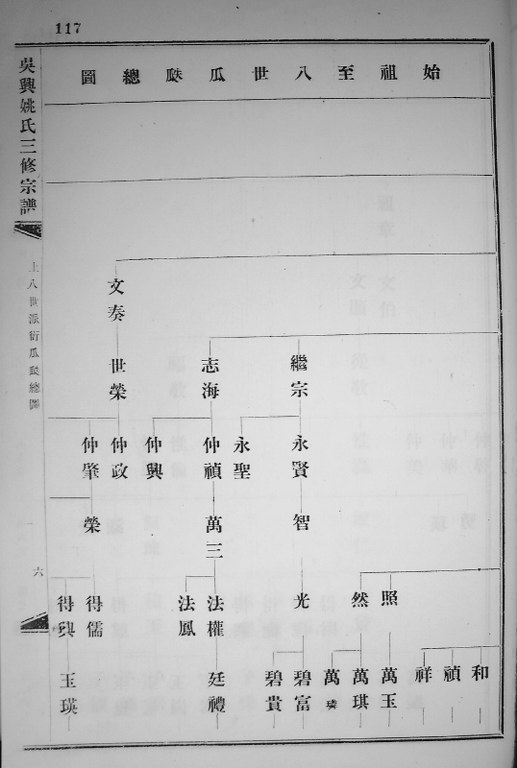 117
始祖至八世瓜瓞總圖
吳興姚氏三修宗譜
上八世派衍瓜瓞總圖
六
文奏
繼宗 志海 世榮
永賢 永聖 仲禎 仲興 仲政 仲肇
智 萬三 榮
照 然 光 法權 法鳳 得儒
和 禎 祥 萬玉 萬琪 萬 碧富 碧貴 廷禮 玉瑛